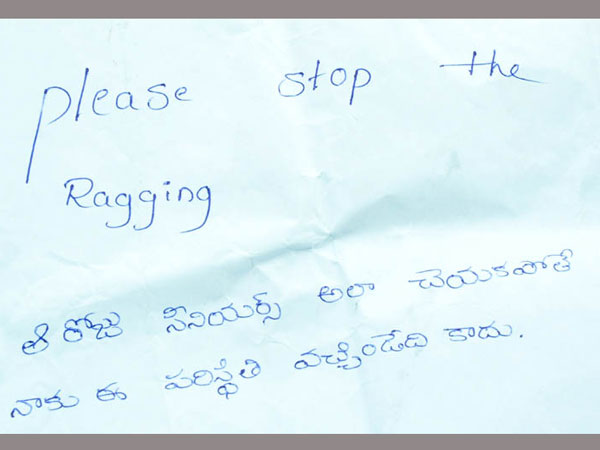 please stop the
Ragging
ఆ రోజు సీనియర్స్ అలా చెయకపోతే
నాకు ఈ పరిస్థితి వచ్చిండేది కాదు.